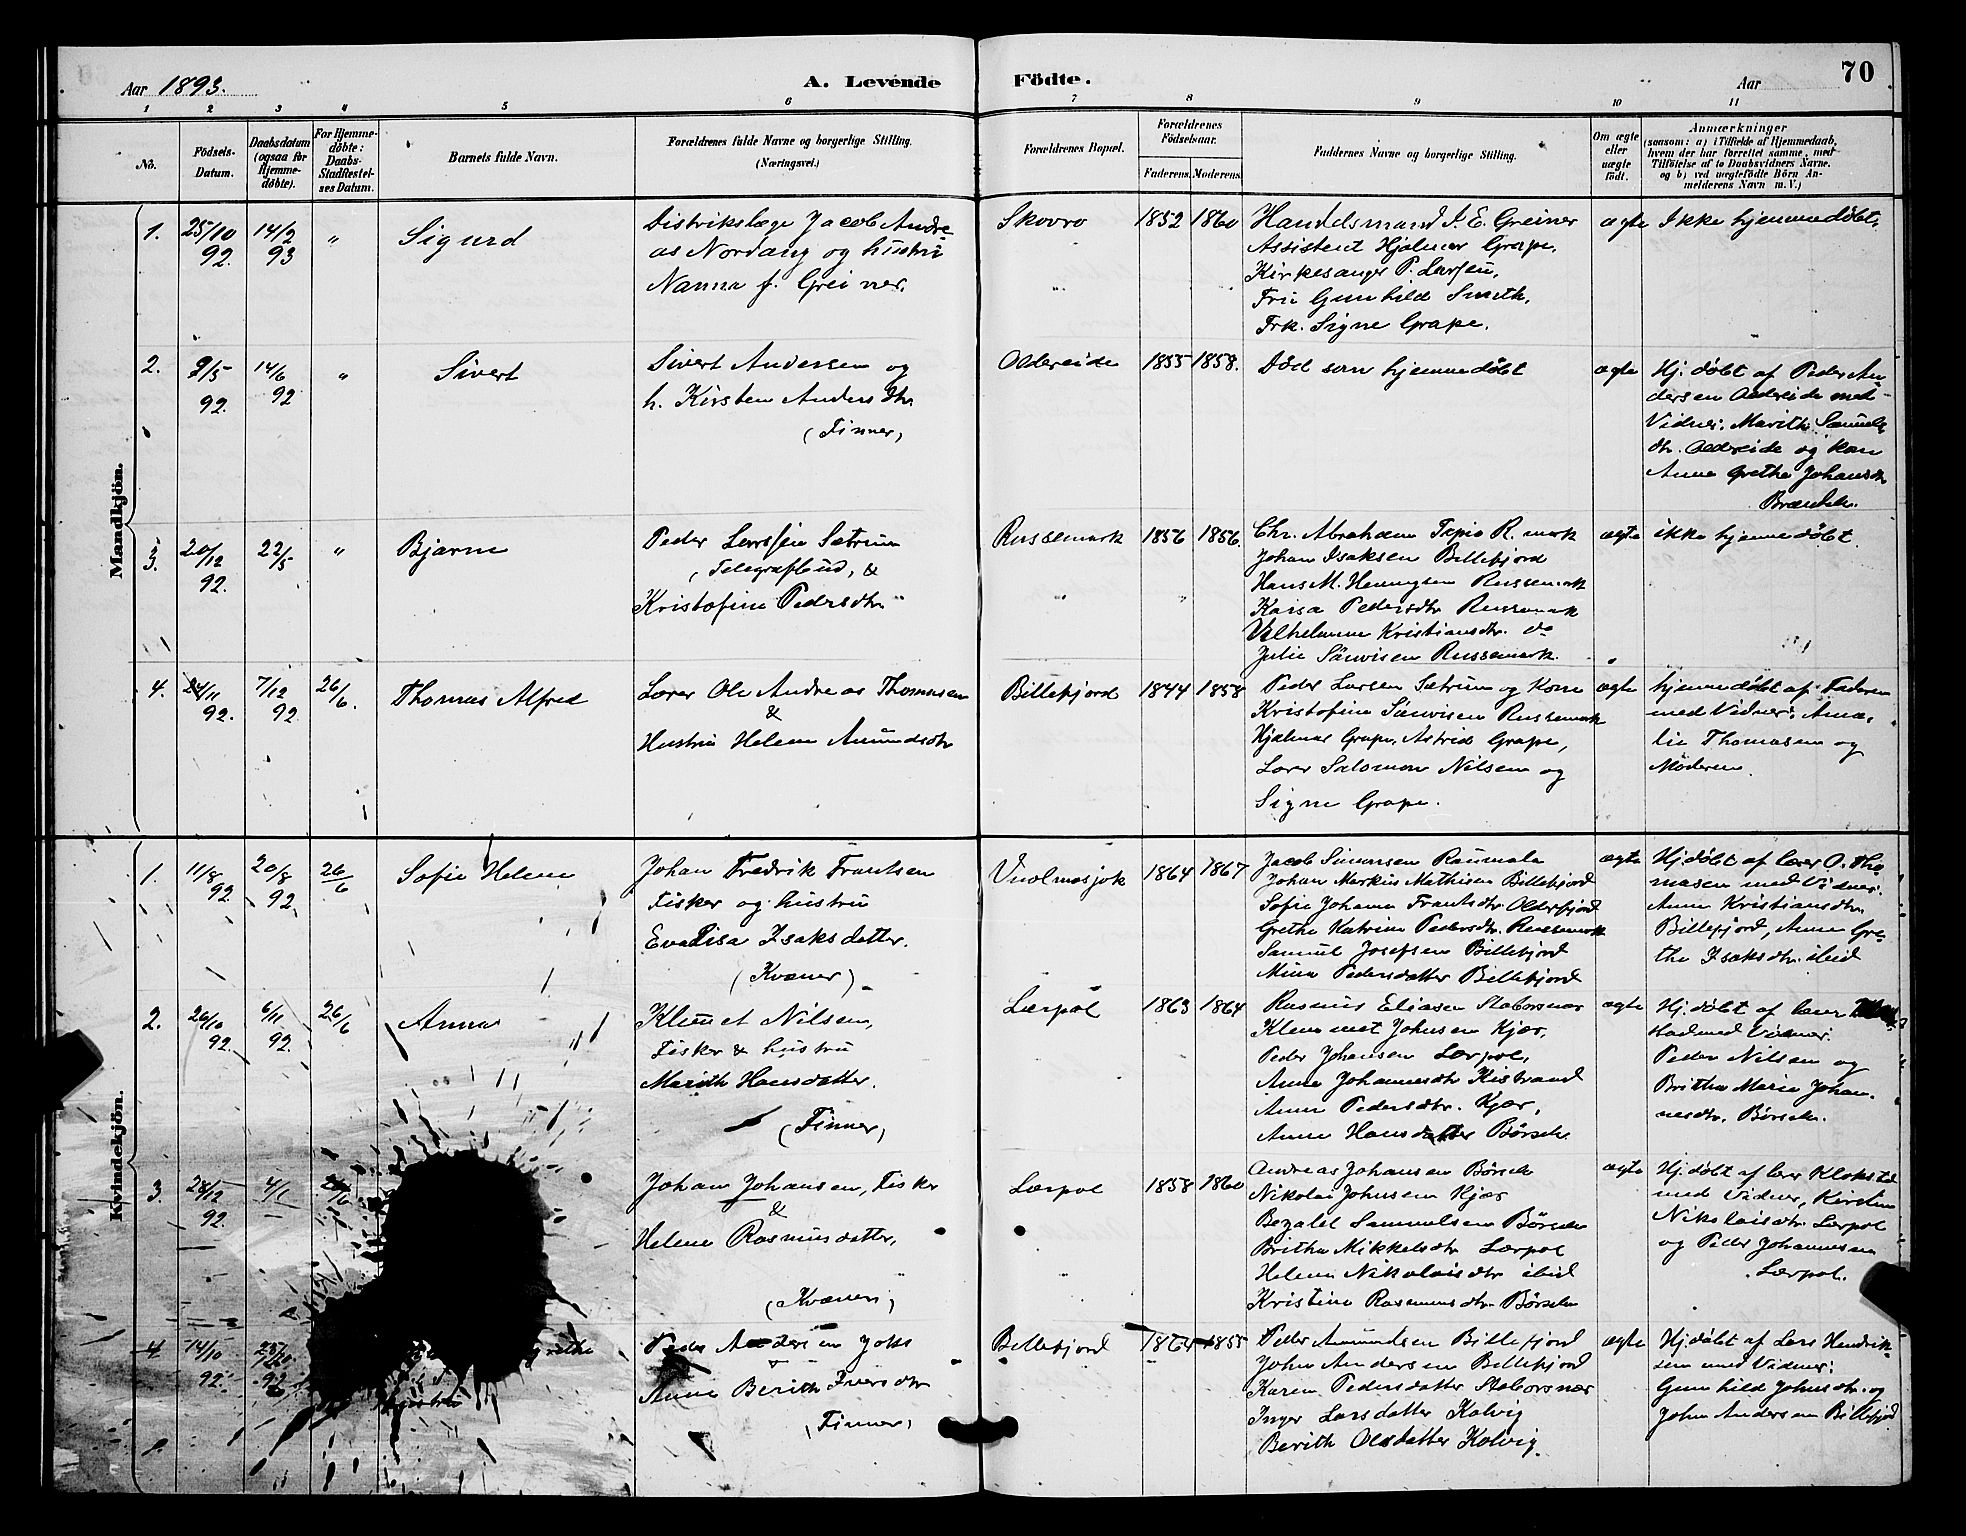 Aar 1893.
A. Levende Födte.
Aar
70
1 2 3 4 5 6 7 8 9 10 11
No.
Födsels-Datum.
Daabsdatum (ogsaa for Hjemme-døbte).
For Hjemme-døbte: Daabs-Stadfæstel-ses Datum.
Barnets fulde Navn.
Forældrenes fulde Navne og borgerlige Stilling. (Næringsvei.)
Forældrenes Bopæl.
Forældrenes Födselsaar.
Faderens. Moderens.
Faddernes Navne og borgerlige Stilling.
Om ægte eller uægte født.
Anmærkninger
(saasom: a) i Tilfælde af Hjemmedaab, hvem der har forrettet samme, med Tilföielse af to Daabsvidners Navne. og b) ved uægtefødte Börn Anmelderens Navn m. V.)
Mandkjön.
1. 25/10 92. 14/2 93 " Sigurd
Distriktslæge Jacob Andre
as Nordang og hustru
Nanna f. Greiner.
Skovro 1852 1860
Handelsmand J. E. Greiner
Assistent Hjalmar Grape,
Kirkesanger P. Larsen,
Gunhild Smith,
Frk. Signe Grape.
ægte Ikke hjemmedøbt.
2. 9/5 92. 14/6 92 " Sivert
Sivert Andersen og
h. Kirsten Andersdtr.
(Finner)
Oldereide 1855 1858.
Död som hjemmedöbt
ægte
Hj. døbt af Peder An
dersen Oldereide med
Vidner: Marith Samuels
dtr. Oldereide og kone
Anne Grethe Johansdtr
3. 20/12 92. 22/5 " Bjarne
Peder Larssen Sætrum
(Telegrafbud) &
Kristofine Pedersdtr.
Russemark 1856 1856.
Chr. Abraham R. mark
Johan Isaksen Billefjord
Hans M. Henrigsen Russemark
Kaisa Pedersdtr Russemark
Vilhelmine Kristiansdtr. do
Julie Russemark.
ægte ikke hjemmedøbt.
4. 24/11 92. 7/12 92 26/6. Thomas Alfred
Lærer Ole Andreas Thomasen
&
Hustru Helene Amundsdtr
Billefjord 1844 1858
Peder Larsen Sætrum og Kone
Kristofine Russemark
Hjalmar Grape, Astrid Grape,
Lærer Salomon Nilsen og
Signe Grape.
ægte
hjemmedøbt af Faderen
med Vidner: Ama,
lie Thomasen og
Moderen.
Kvindekjön.
1. 11/8 92 20/8 92 26/6 Sofie Helene
Johan Fredrik Frantsen
Fisker og hustru
Eva Lisa Isaksdatter.
(Kvæner)
Vuolmasjok 1864 1867
Jacob Simonsen Raumala
Johan Markus Mathisen Billefjord
Sofie Johanne Frantsdtr. Olderfjord
Grethe Katrine Pedersdtr. Russemark
Samuel Josefsen Billefjord
Mina Pedersdatter Billefjord
ægte
Hj. døbt af lærer O. Tho
masen med Vidner:
Anne Kristiansdtr.
Billefjord, Anne Gre-
the Isaksdtr. ibid
2. 26/10 92. 6/11 92. 26/6 Anna
Klemet Nilsen,
Fisker & hustru
Marith Hansdatter.
(Finner)
Lærpol 1863 1864
Rasmus Eliasen Staborsnæs
Klemmet Johnsen Kjær,
Peder Johansen Lærpol,
Anne Johannesdtr Kistrand
Anne Pedersdtr. Kjær,
Anne Hansdatter Børsele
ægte
Hj. døbt af lærer
stad med Vidner:
Peder Nilsen og
Britha Marie Johan.
nesdtr. Børsele.
3. 28/12 92. 4/1 /6
Johan Johansen, Fisker
&
Helene Rasmusdatter,
(Kvæner)
Lærpol 1858 1860
Andreas Johansen Børsele
Nikolai Johnsen Kjær
Bezalel Sammelsen Børsele
Britha Mikkelsdtr Lærpol
Helene Nikolaisdtr ibid
Kristine Rasmusdtr. Børsele
ægte
Hj. døbt af lærer
med Vidner, Kirsten
Nikolaisdtr. Lærpol
og Peder Johannesen
Lærpol.
4 14/10 92.
Peder Andersen Joks
Anne Berith Iversdtr
(Finner)
Billefjord 1864 1855
Peder Amundsen Billefjord
John Andersen Billefjord
Karen Pedersdatter Staborsnæs
Inger Larsdatter Kolvig
Berith Olesdatter Kolvig.
ægte
Hj. døbt af Lars Hendrik-
sen med Vidner:
Gunhild Johnsdtr. og
John Andersen Billefjord